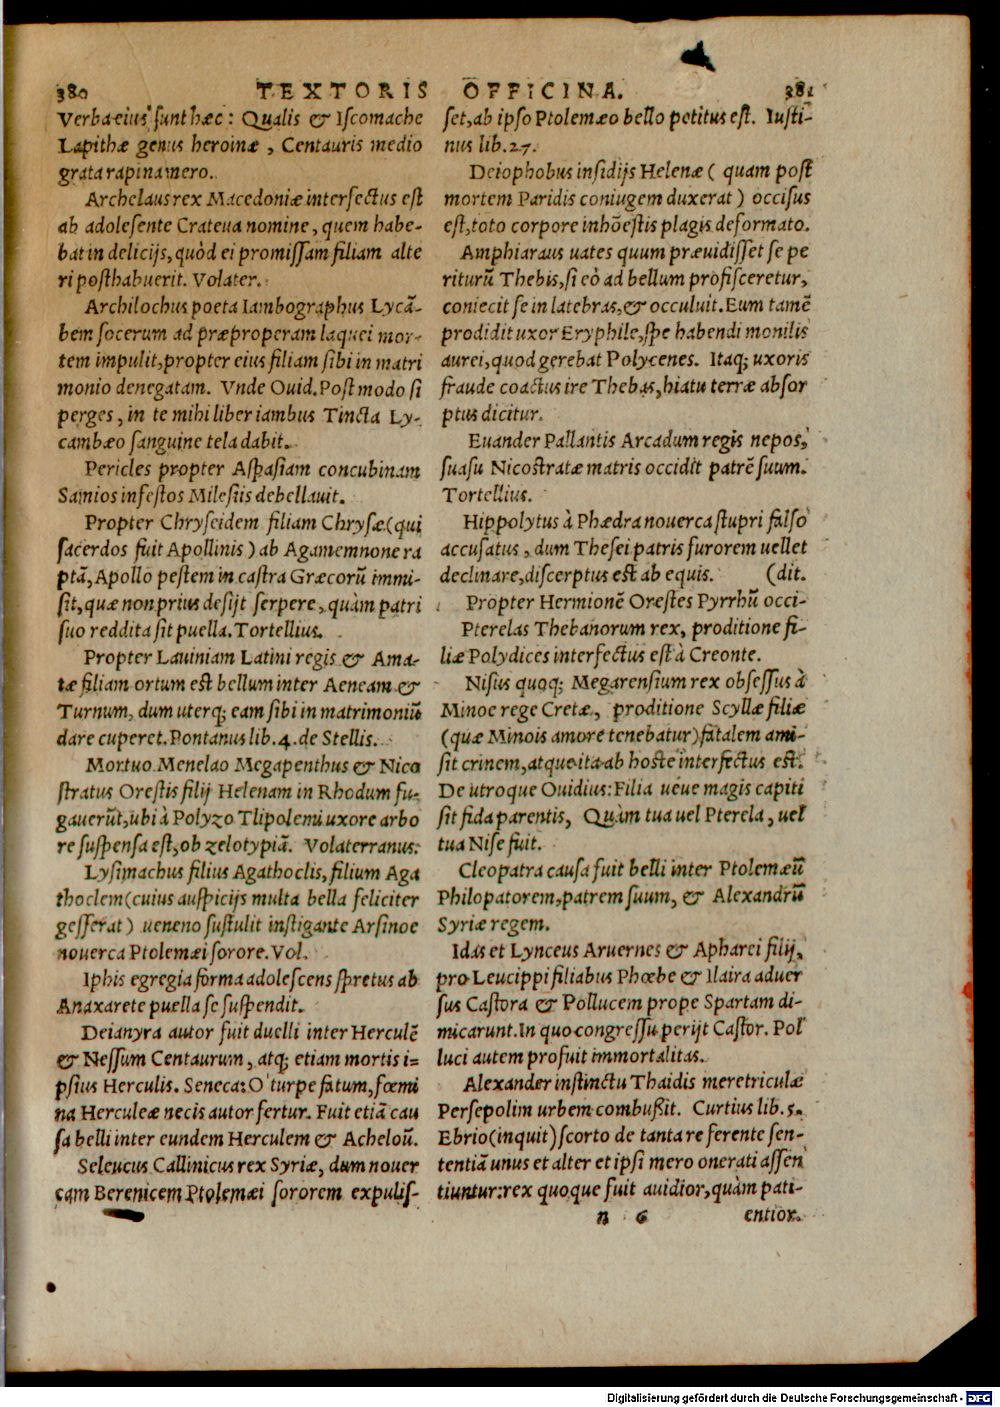 380 TEXTORIS OFFICINA. 381
Verba eius sunt hæc: Qualis & Iscomache
Lapithæ genus heroinæ, Centauris medio
grata rapina mero.
Archelaus rex Macedoniæ interfectus est
ab adolesente Crateua nomine, quem habe-
bat in delicijs, quòd ei promissam filiam alte
ri posthabuerit. Volater.
Archilochus poeta Iambographus Lycā-
bem socerum ad præproperam laquei mor-
tem impulit, propter eius filiam sibi in matri
monio denegatam. Vnde Ouid. Post modo si
perges, in te mihi liber iambus Tincta Ly-
cambæo sanguine tela dabit.
Pericles propter Aspasiam concubinam
Samios infestos Milesiis debellauit.
Propter Chryseidem filiam Chrysæ (qui
sacerdos fuit Apollinis) ab Agamemnone ra
ptā, Apollo pestem in castra Græcorū immi-
sit, quæ non prius desijt serpere, quàm patri
suo reddita sit puella. Tortellius.
Propter Lauiniam Latini regis & Ama-
tæ filiam ortum est bellum inter Aeneam &
Turnum, dum uterq; eam sibi in matrimoniū
dare cuperet. Pontanus lib. 4. de Stellis.
Mortuo Menelao Megapenthus & Nico
stratus Orestis filij Helenam in Rhodum fu-
gauerūt, ubi à Polyzo Tlipolemi uxore arbo
re suspensa est, ob zelotypiā. Volaterranus.
Lysimachus filius Agathoclis, filium Aga
thoclem (cuius auspicijs multa bella feliciter
gesserat) ueneno sustulit instigante Arsinoe
nouerca Ptolemæi sorore. Vol.
Iphis egregia forma adolescens spretus ab
Anaxarete puella se suspendit.
Deianyra autor fuit duelli inter Herculē
& Nessum Centaurum, atq; etiam mortis i=
psius Herculis. Seneca: O turpe fatum, fœmi
na Herculeæ necis autor fertur. Fuit etiā cau
sa belli inter eundem Herculem & Acheloū.
Seleucus Callinicus rex Syriæ, dum nouer
cam Berenicem Ptolemæi sororem expulis-
set, ab ipso Ptolemæo bello petitus est. Iusti-
nus lib. 27.
Deiophobus insidijs Helenæ (quam post
mortem Paridis coniugem duxerat) occisus
est, toto corpore inhōestis plagis deformato.
Amphiaraus uates quum præuidisset se pe
riturū Thebis, si eò ad bellum profisceretur,
coniecit se in latebras, & occuluit. Eum tamē
prodidit uxor Eryphile, spe habendi monilis
aurei, quod gerebat Polycenes. Itaq; uxoris
fraude coactus ire Thebas, hiatu terræ absor
ptus dicitur.
Euander Pallantis Arcadum regis nepos,
suasu Nicostratæ matris occidit patrē suum.
Tortellius.
Hippolytus à Phædra nouerca stupri falso
accusatus, dum Thesei patris furorem uellet
declinare, discerptus est ab equis. (dit.
Propter Hermionē Orestes Pyrrhū occi-
Pterelas Thebanorum rex, proditione fi-
liæ Polydices interfectus est à Creonte.
Nisus quoq; Megarensium rex obsessus à
Minoe rege Cretæ, proditione Scyllæ filiæ
(quæ Minois amore tenebatur) fatalem ami-
sit crinem, atque ita ab hoste interfectus est.
De utroque Ouidius: Filia uéue magis capiti
sit fida parentis, Quàm tua uel Pterela, uel
tua Nise fuit.
Cleopatra causa fuit belli inter Ptolemæū
Philopatorem, patrem suum, & Alexandrū
Syriæ regem.
Idas et Lynceus Aruernes & Apharei filij,
pro Leucippi filiabus Phœbe & Ilaira aduer
sus Castora & Pollucem prope Spartam di-
micarunt. In quo congressu perijt Castor. Pol
luci autem profuit immortalitas.
Alexander instinctu Thaidis meretriculæ
Persepolim urbem combussit. Curtius lib. 5.
Ebrio (inquit) scorto de tanta re ferente sen-
tentiā unus et alter et ipsi mero onerati assen
tiuntur: rex quoque fuit auidior, quàm pati-
n 6 entior.
Digitalisierung gefördert durch die Deutsche Forschungsgemeinschaft - DFG